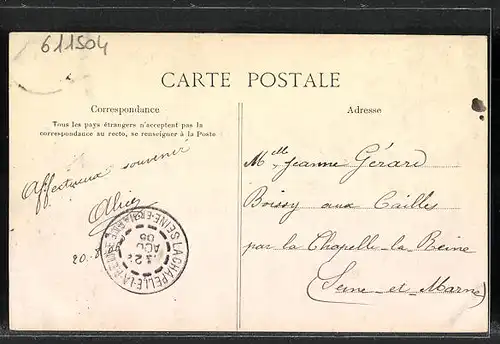 611504
CARTE POSTALE
Correspondance
Tous les pays étrangers n'acceptent pas la
correspondance au recto, se renseigner à la Poste
Affectueux souvenir
Alice
20-8-
LA CHAPELLE-LA-REINE
AOU
05
Adresse
Mlle Jeanne Gérard
Boissy aux Cailles
par la Chapelle-la-Reine
(Seine-et-Marne)